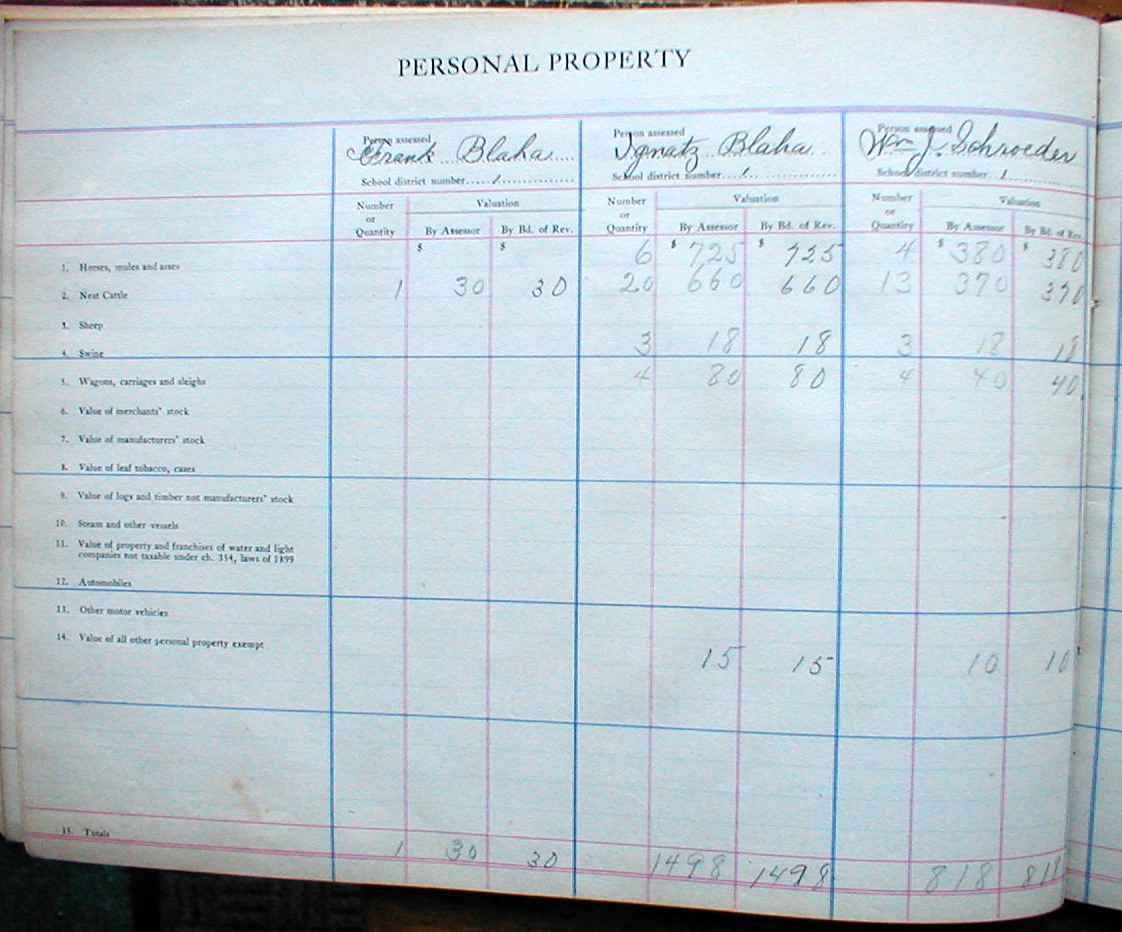 PERSONAL PROPERTY
Person assessed Frank Blaha
School district number 1
Person assessed Ignatz Blaha
School district number 1
Person assessed Wm J. Schroeder
School district number 1
Number or Quantity Valuation By Assessor By Bd. of Rev.
Number or Quantity Valuation By Assessor By Bd. of Rev.
Number or Quantity Valuation By Assessor By Bd. of Rev.
1. Horses, mules and asses $ $ 6 $ 725 $ 725 4 $ 380 $ 380
2. Neat Cattle 1 30 30 20 660 660 13 370 370
3. Sheep
4. Swine 3 18 18 3 18 18
5. Wagons, carriages and sleighs 4 80 80 4 40 40
6. Value of merchants' stock
7. Value of manufacturers' stock
8. Value of leaf tobacco, cases
9. Value of logs and timber not manufacturers' stock
10. Steam and other vessels
11. Value of property and franchises of water and light
companies not taxable under ch. 354, laws of 1899
12. Automobiles
13. Other motor vehicles
14. Value of all other personal property exempt 15 15 10 10
15. Totals 1 30 30 1498 1498 818 818